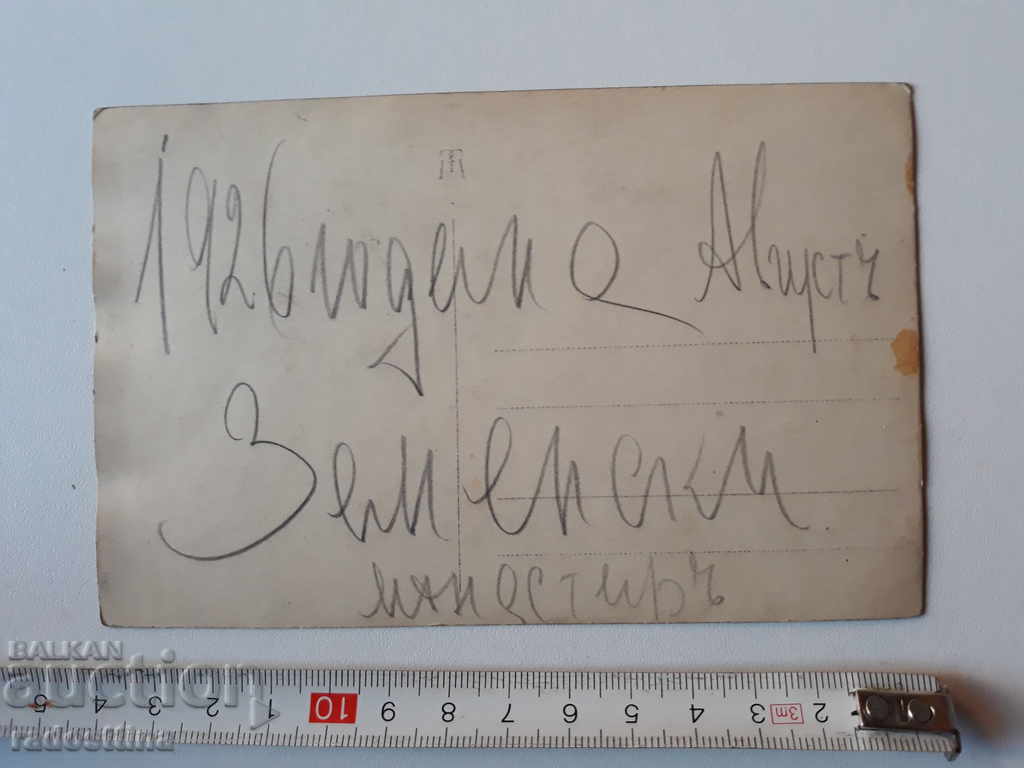 1926 година Августъ
Земенски
манастиръ
BALKAN
auction
radostina
5 4 3 2 1 10 9 8 7 6 5 4 3 3m 2